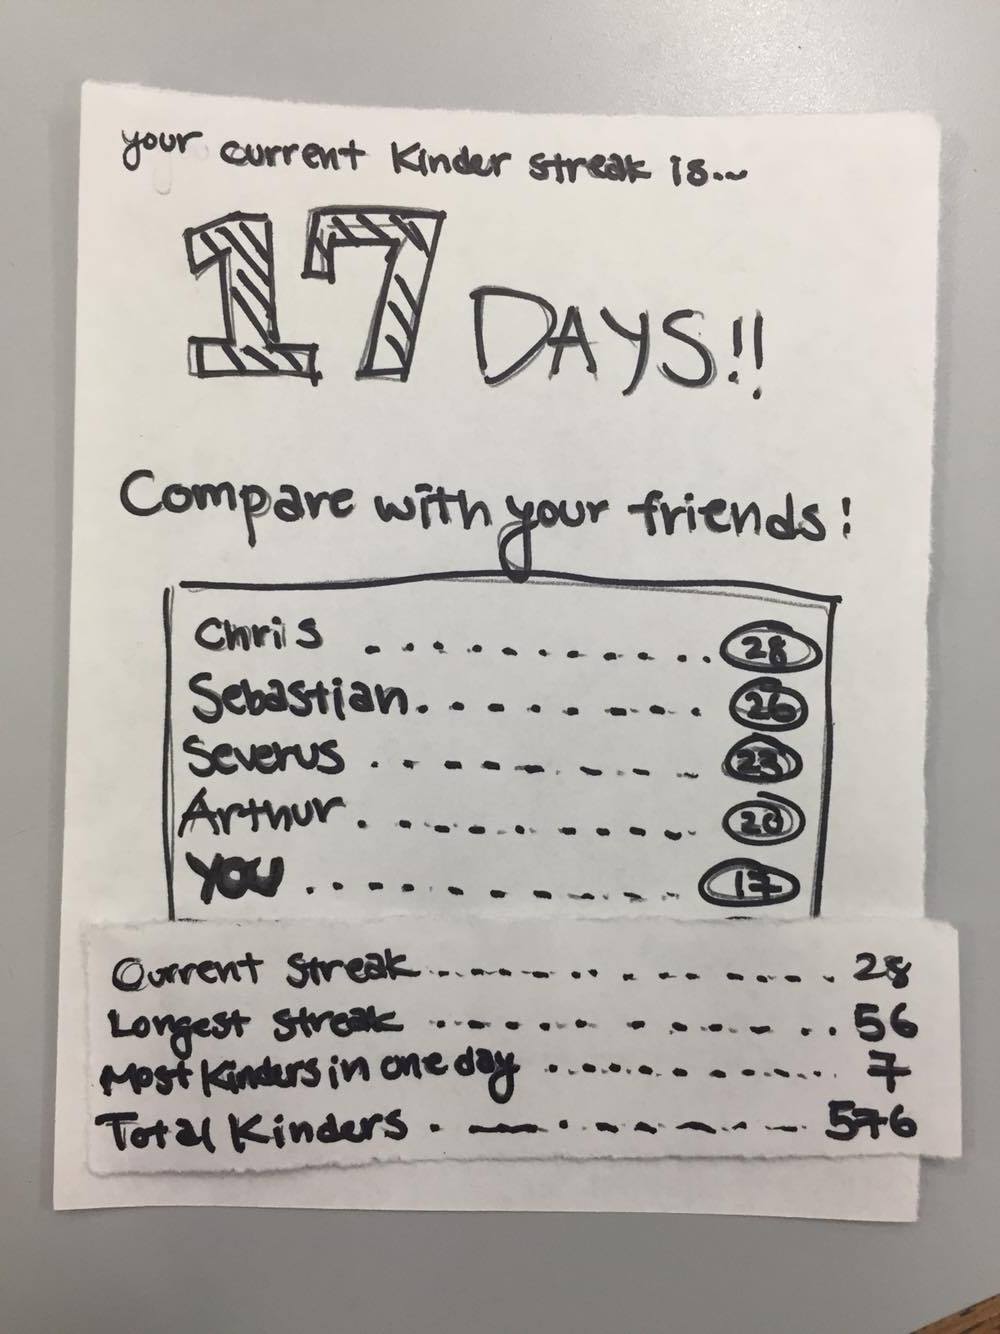 your current Kinder streak is...
17 DAYS!!
Compare with your friends!
Chris 28
Sebastian 26
Severus 23
Arthur 20
You 17
Current streak 28
Longest streak 56
Most Kinders in one day 7
Total Kinders 576